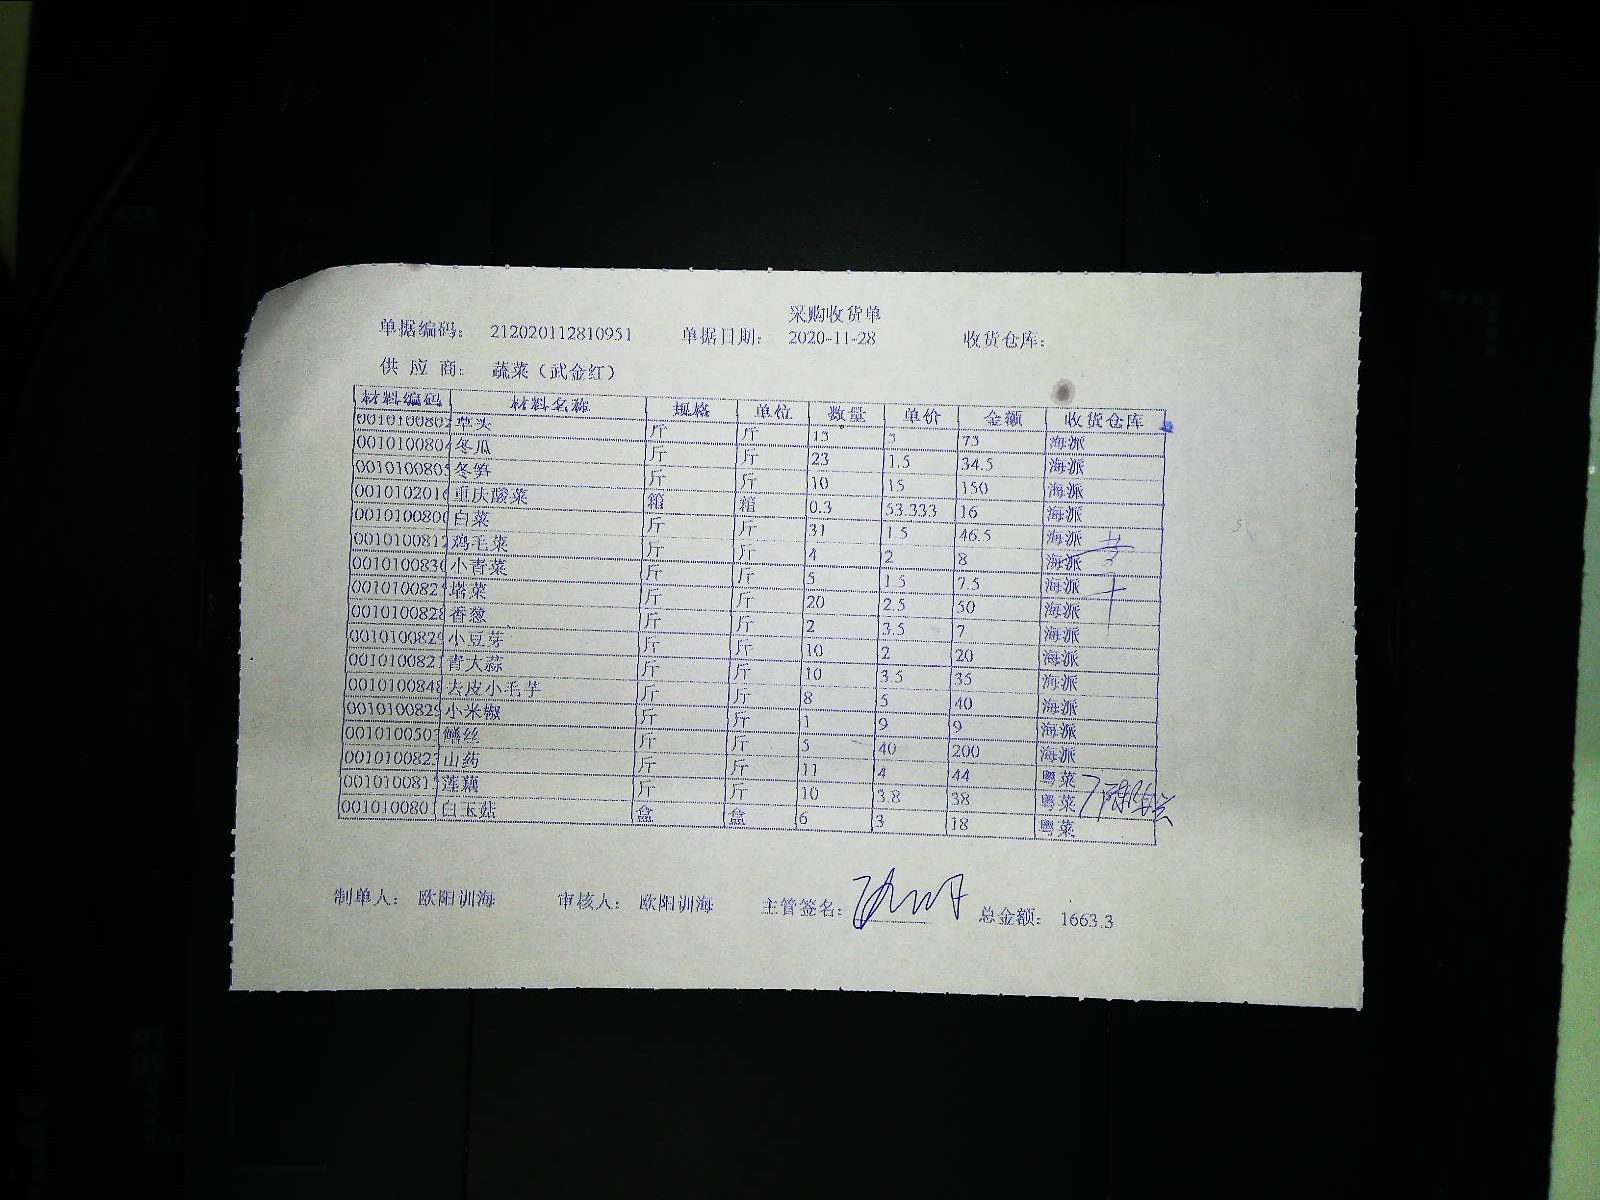 采购收货单
单据编码： 212020112810951 单据日期： 2020-11-28 收货仓库：
供 应 商： 蔬菜（武金红）
材料编码 材料名称 规格 单位 数量 单价 金额 收货仓库
0010100802 草头 斤 斤 15 5 75 海派
0010100804 冬瓜 斤 斤 23 1.5 34.5 海派
0010100805 冬笋 斤 斤 10 15 150 海派
0010102016 重庆酸菜 箱 箱 0.3 53.333 16 海派
0010100800 白菜 斤 斤 31 1.5 46.5 海派
0010100812 鸡毛菜 斤 斤 4 2 8 海派
0010100830 小青菜 斤 斤 5 1.5 7.5 海派
001010082 塔菜 斤 斤 20 2.5 50 海派
0010100828 香葱 斤 斤 2 3.5 7 海派
0010100829 小豆芽 斤 斤 10 2 20 海派
0010100821 青大蒜 斤 斤 10 3.5 35 海派
0010100848 大皮小毛芋 斤 斤 8 5 40 海派
0010100829 小米椒 斤 斤 1 9 9 海派
0010100503 鳝丝 斤 斤 5 40 200 海派
0010100823 山药 斤 斤 11 4 44 粤菜
001010081 莲藕 斤 斤 10 3.8 38 粤菜
0010100801 白玉菇 盒 盒 6 3 18 粤菜
制单人： 欧阳训海 审核人： 欧阳训海 主管签名： 总金额： 1663.3